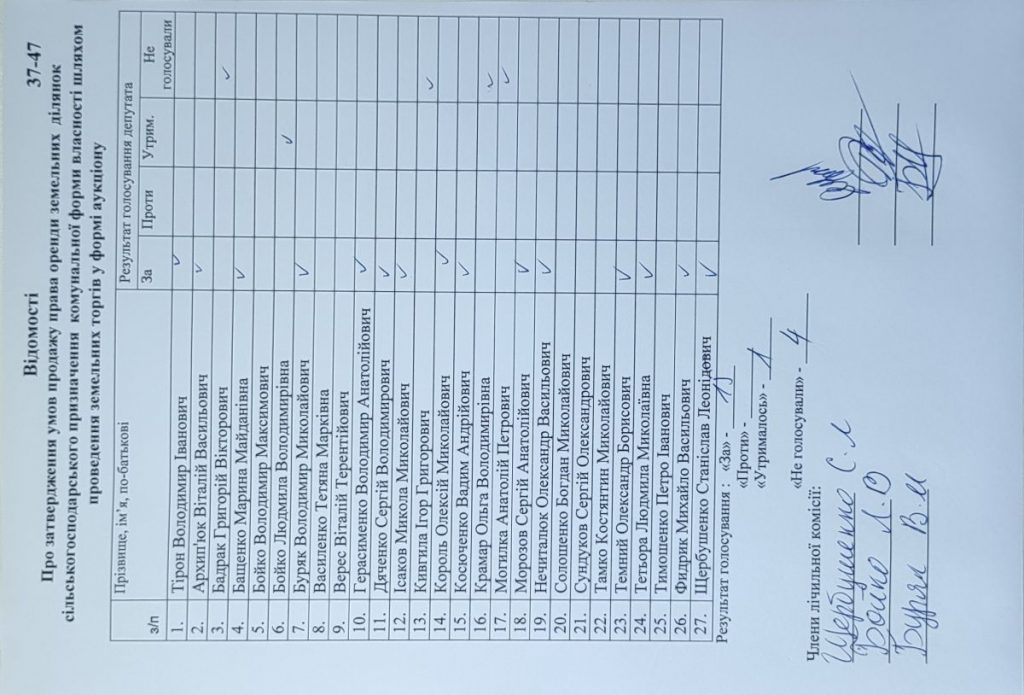 Відомості
37-47
Про затвердження умов продажу права оренди земельних ділянок
сільськогосподарського призначення комунальної форми власності шляхом
проведення земельних торгів у формі аукціону
з/п Прізвище, ім'я, по-батькові Результат голосування депутата
За Проти Утрим. Не голосували
1. Тірон Володимир Іванович ✓
2. Архип'юк Віталій Васильович ✓
3. Бадрак Григорій Вікторович ✓
4. Бащенко Марина Майданівна ✓
5. Бойко Володимир Максимович
6. Бойко Людмила Володимирівна ✓
7. Буряк Володимир Миколайович ✓
8. Василенко Тетяна Марківна
9. Верес Віталій Терентійович
10. Герасименко Володимир Анатолійович ✓
11. Дяченко Сергій Володимирович ✓
12. Ісаков Микола Миколайович ✓
13. Кивгила Ігор Григорович ✓
14. Король Олексій Миколайович ✓
15. Косюченко Вадим Андрійович ✓
16. Крамар Ольга Володимирівна ✓
17. Могилка Анатолій Петрович ✓
18. Морозов Сергій Анатолійович ✓
19. Нечиталюк Олександр Васильович ✓
20. Солошенко Богдан Миколайович
21. Сундуков Сергій Олександрович
22. Тамко Костянтин Миколайович
23. Темний Олександр Борисович ✓
24. Тетьора Людмила Миколаївна ✓
25. Тимошенко Петро Іванович
26. Фидрик Михайло Васильович ✓
27. Щербушенко Станіслав Леонідович ✓
Результат голосування : «За» -
«Проти» -
«Утрималось» - 1
«Не голосували» - 4
Члени лічильної комісії:
Щербушенко С. Л
Бойко Л. В
Буряк В. М